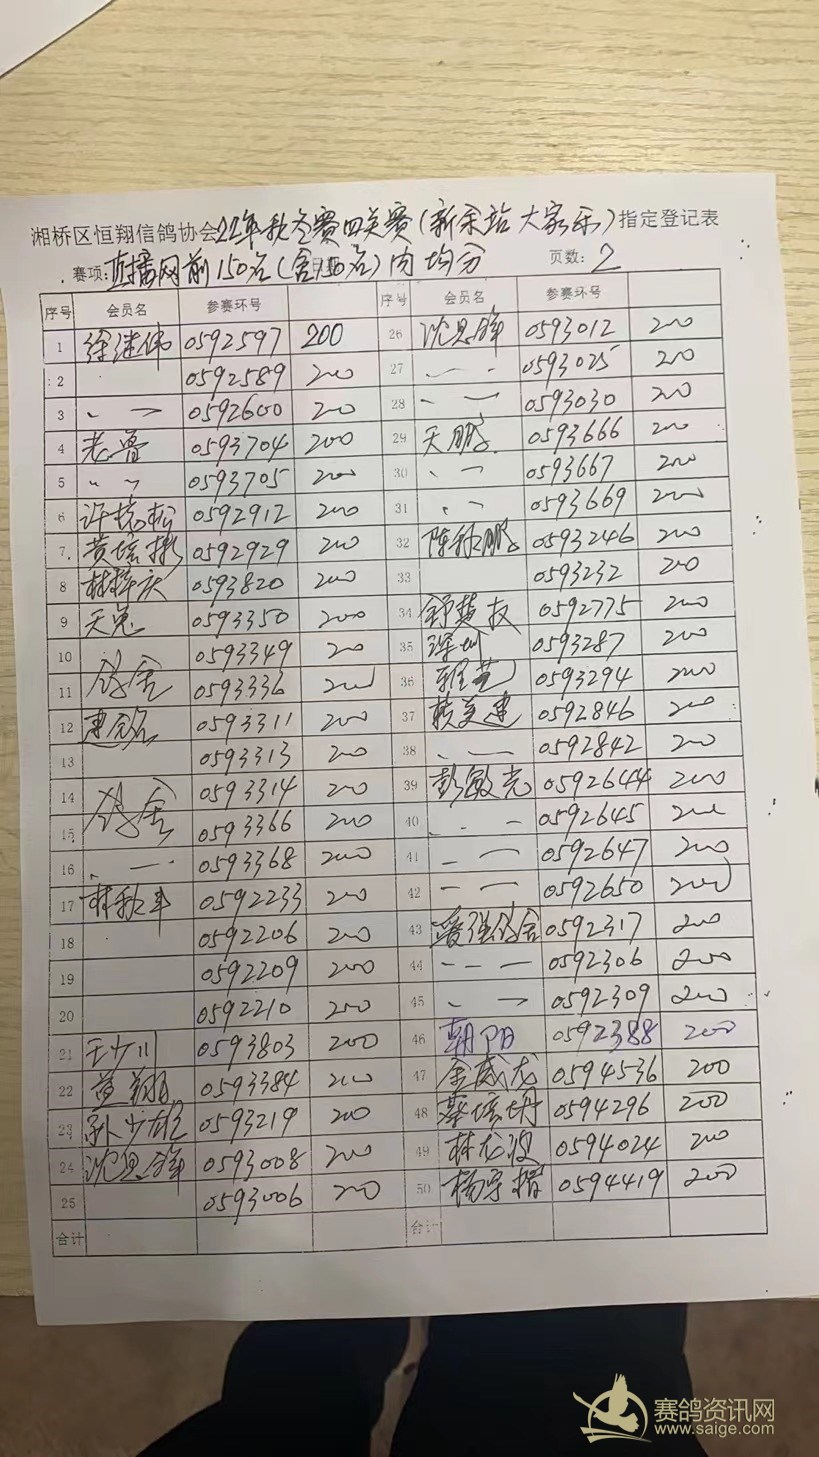 湘桥区恒翔信鸽协会22年秋冬赛四关赛(新余站大家乐)指定登记表
赛项:直播网前150名(含150名)内均分 页数:2
序号 会员名 参赛环号 序号 会员名 参赛环号
1 徐继伟 0592597 200 26 沈思锋 0593012 200
2 0592589 200 27 〃 0593025 200
3 〃 0592600 200 28 〃 0593030 200
4 老鲁 0593704 200 29 天鹏 0593666 200
5 〃 0593705 200 30 〃 0593667 200
6 许 松 0592912 200 31 〃 0593669 200
7 黄培彬 0592929 200 32 陈秋鹏 0593246 200
8 林梓庆 0593820 200 33 0593232 200
9 天苑 0593350 200 34 舒 0592775 200
10 鸽舍 0593349 200 35 深圳 0593287 200
11 0593336 200 36 雅艺 0593294 200
12 建 0593311 200 37 美建 0592846 200
13 0593313 200 38 〃 0592842 200
14 鸽舍 0593314 200 39 彭敏光 0592644 200
15 0593366 200 40 〃 0592645 200
16 〃 0593368 200 41 〃 0592647 200
17 林秋丰 0592233 200 42 〃 0592650 200
18 0592206 200 43 强鸽舍 0592317 200
19 0592209 200 44 〃 0592306 200
20 0592210 200 45 〃 0592309 200
21 王少川 0593803 200 46 朝阳 0592388 200
22 黄翔 0593384 200 47 余威龙 0594536 200
23 孙少雄 0593219 200 48 蔡培升 0594296 200
24 沈思锋 0593008 200 49 林龙波 0594024 200
25 0593006 200 50 杨宇楷 0594419 200
合计 合计
赛鸽资讯网
www.saige.com